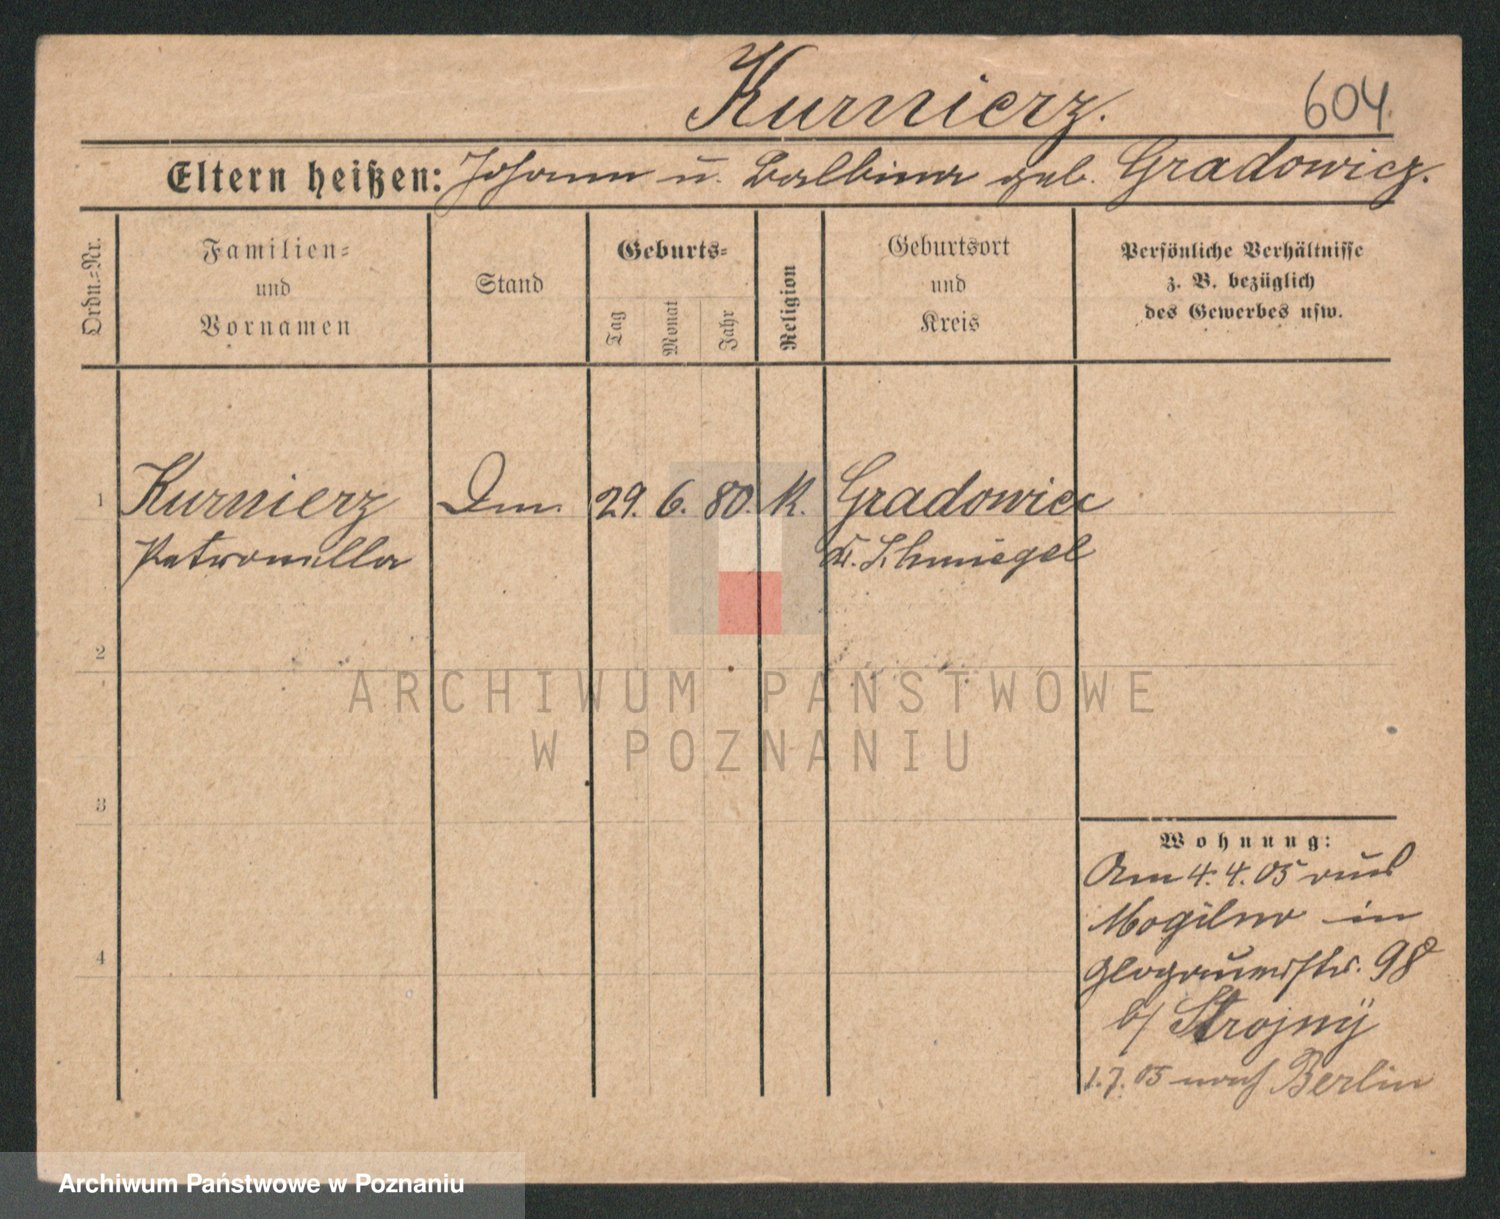 Kurnierz.
604.
Eltern heißen: Johann u. Balbina geb. Gradowicz.
Ordn.-Nr.
Familien-
und
Vornamen
Stand
Geburts-
Tag
Monat
Jahr
Religion
Geburtsort
und
Kreis
Persönliche Verhältnisse
z. B. bezüglich
des Gewerbes usw.
1 Kurnierz 29. 6. 80. K. Gradowice
Petronilla Kr. Schmiegel
2
ARCHIWUM PAŃSTWOWE
W POZNANIU
3
Wohnung:
Am 4. 4. 05 aus
Mogilno in
4
Glogauerstr. 98
b/ Strojny
1. 7. 05 nach Berlin
Archiwum Państwowe w Poznaniu